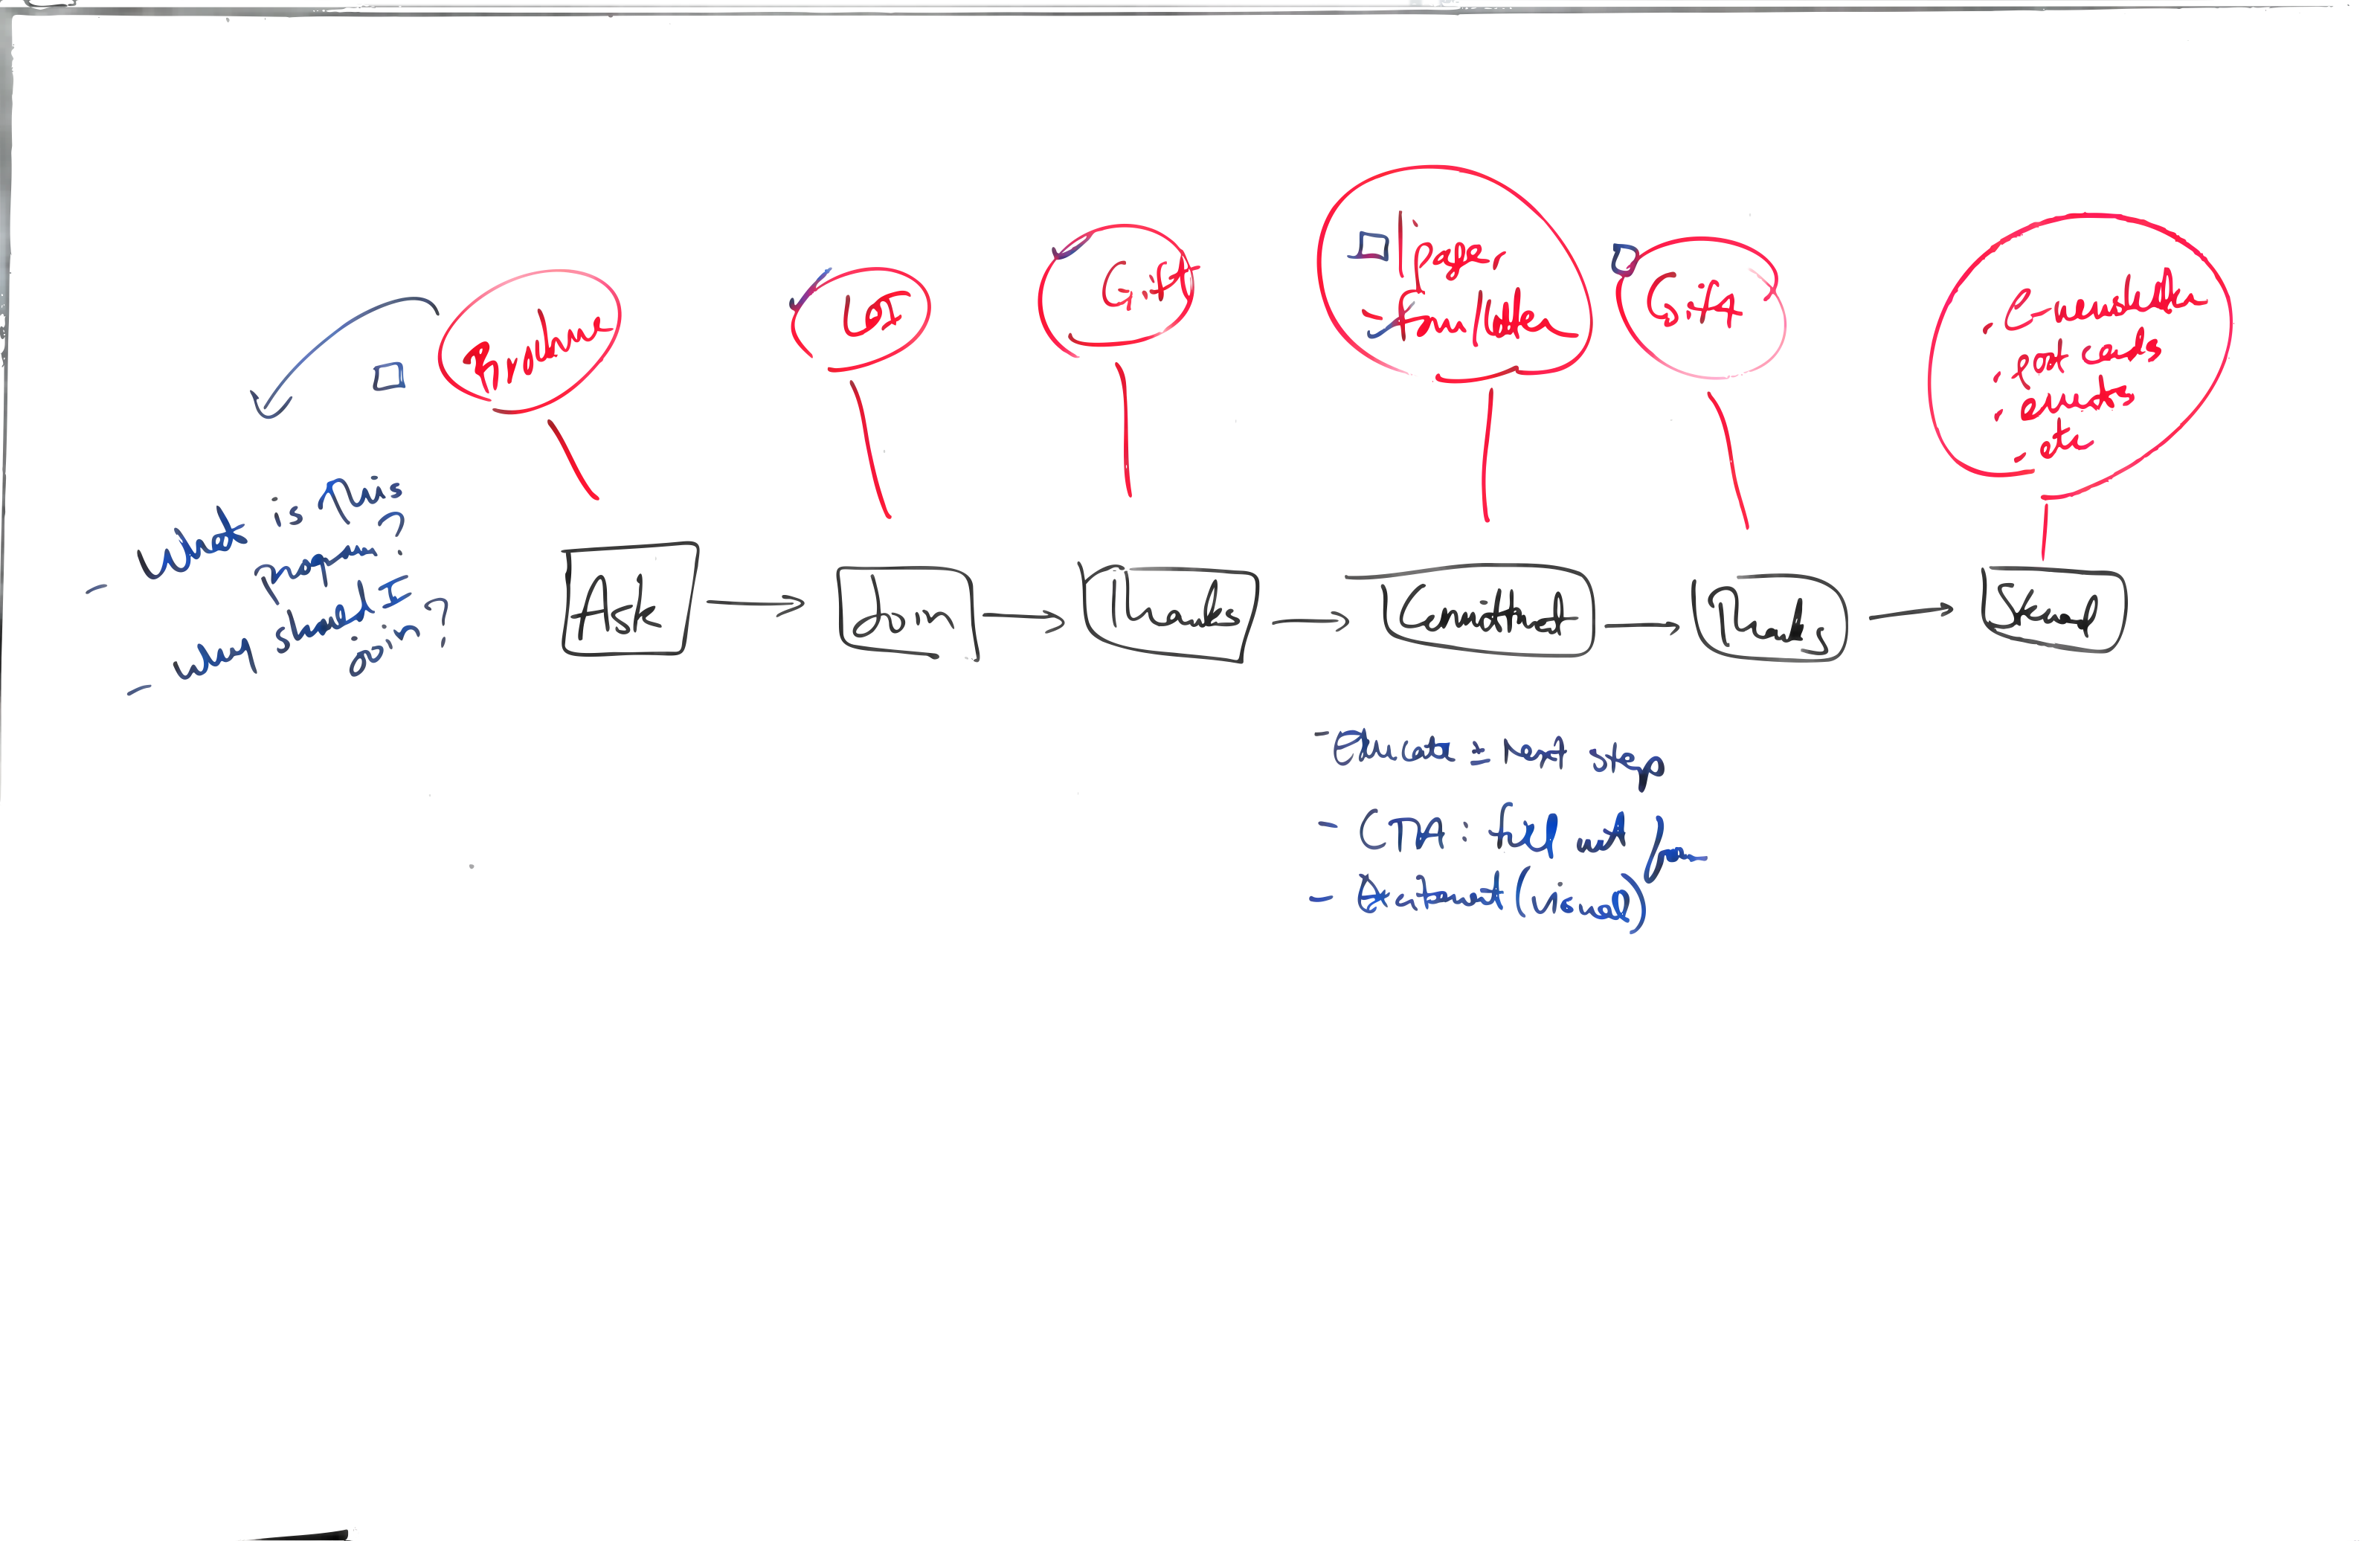 Brochure
LOI
Gift
1 pager
- form / letter
Gift
. E-newsletter
. post cards
. events
- etc
- What is this
program?
- why should I
join?
Ask
Join
Thanks
Commitment
Thanks
Steward
- Educate = Next step
- CTA: fill out form
- Excitement (visual)